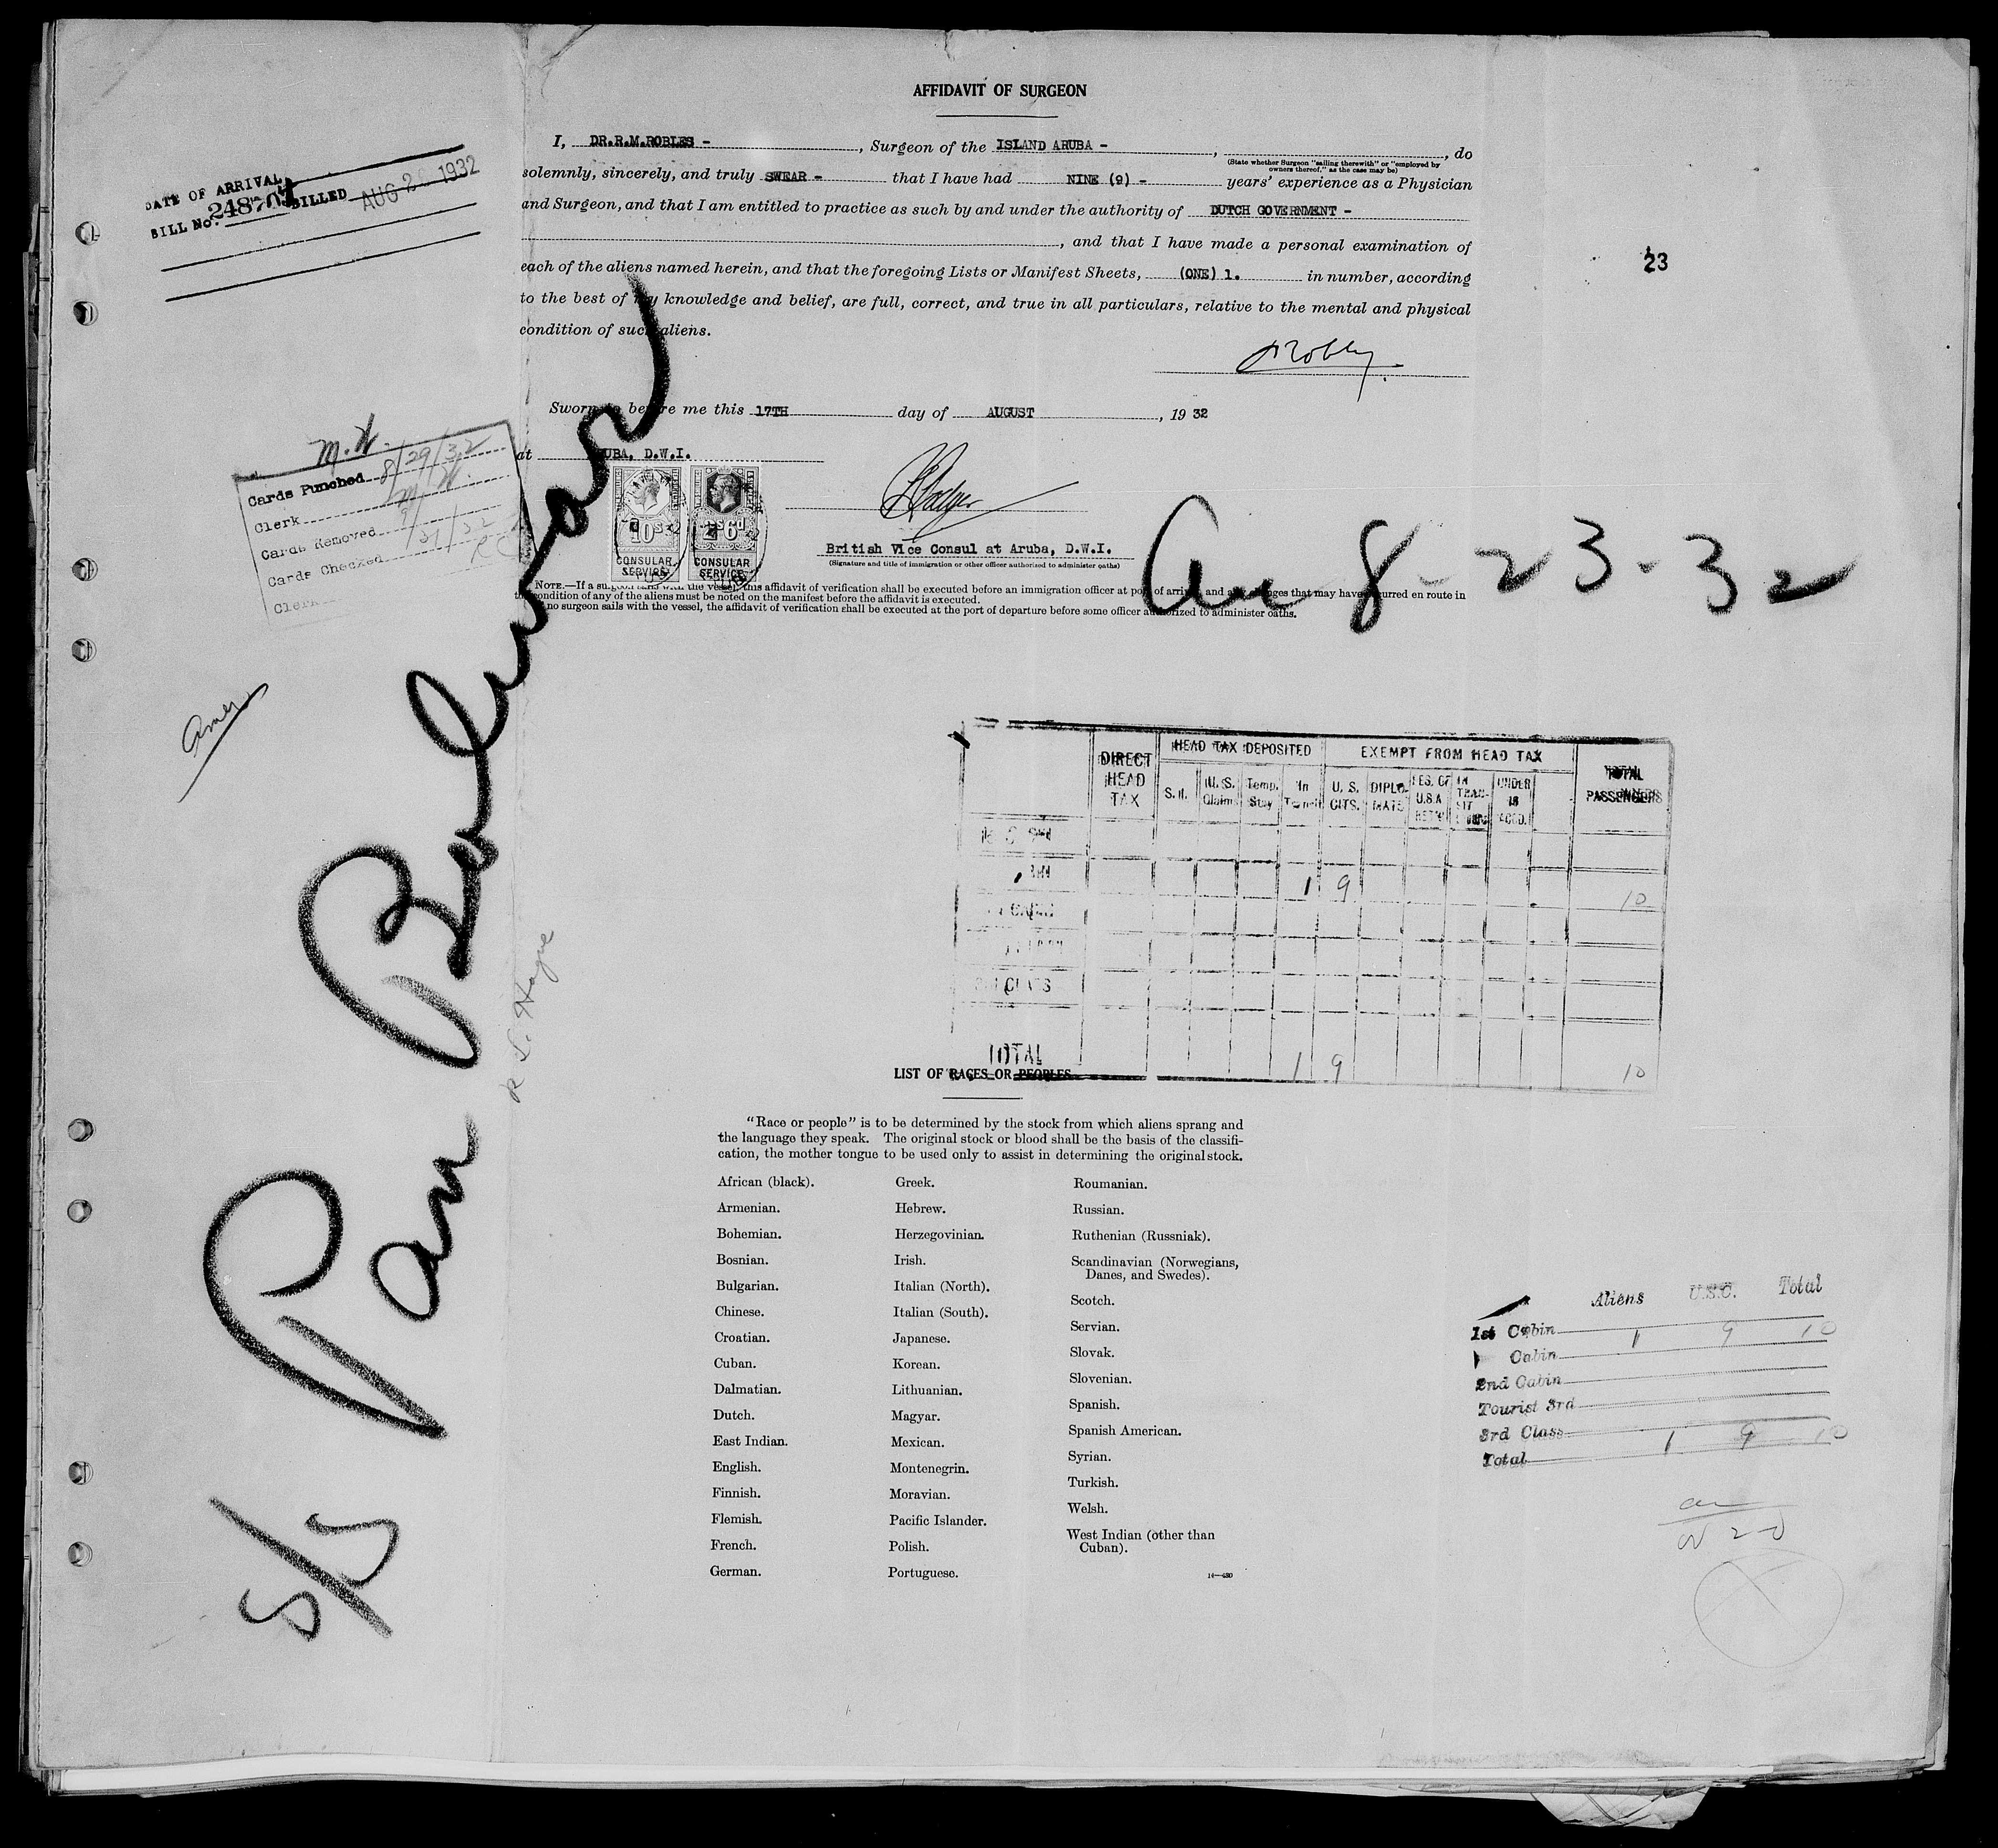 AFFIDAVIT OF SURGEON
I, DR.R.M.ROBLES - , Surgeon of the ISLAND ARUBA - , , do
(State whether Surgeon "sailing therewith" or "employed by owners thereof," as the case may be)
solemnly, sincerely, and truly SWEAR - that I have had NINE (9) - years' experience as a Physician
and Surgeon, and that I am entitled to practice as such by and under the authority of DUTCH GOVERNMENT -
, and that I have made a personal examination of
each of the aliens named herein, and that the foregoing Lists or Manifest Sheets, (ONE) 1. in number, according
to the best of my knowledge and belief, are full, correct, and true in all particulars, relative to the mental and physical
condition of such aliens.
Sworn to before me this 17TH day of AUGUST , 19 32
at ARUBA, D.W.I.
British Vice Consul at Aruba, D.W.I.
(Signature and title of immigration or other officer authorized to administer oaths)
10s 2s6d
CONSULAR SERVICE CONSULAR SERVICE
NOTE.—If a surgeon sails with the vessel, this affidavit of verification shall be executed before an immigration officer at port of arrival, and any changes that may have occurred en route in
the condition of any of the aliens must be noted on the manifest before the affidavit is executed.
If no surgeon sails with the vessel, the affidavit of verification shall be executed at the port of departure before some officer authorized to administer oaths.
DATE OF ARRIVAL
BILL No. BILLED AUG 1932
23
M.W.
Cards Punched 8/29/32
Clerk
Cards Removed
Cards Checked
Clerk
Amer
S/S Pan Bolivar
Arr 8-23-32
DIRECT HEAD TAX
HEAD TAX DEPOSITED
EXEMPT FROM HEAD TAX
TOTAL PASSENGERS
U.S. Claims Temp. Stay In Transit U. S. CITS. DIPLOMATS UNDER 16 ACCD.
1 9 10
TOTAL 1 9 10
LIST OF RACES OR PEOPLES
"Race or people" is to be determined by the stock from which aliens sprang and
the language they speak. The original stock or blood shall be the basis of the classifi-
cation, the mother tongue to be used only to assist in determining the original stock.
African (black).
Armenian.
Bohemian.
Bosnian.
Bulgarian.
Chinese.
Croatian.
Cuban.
Dalmatian.
Dutch.
East Indian.
English.
Finnish.
Flemish.
French.
German.
Greek.
Hebrew.
Herzegovinian.
Irish.
Italian (North).
Italian (South).
Japanese.
Korean.
Lithuanian.
Magyar.
Mexican.
Montenegrin.
Moravian.
Pacific Islander.
Polish.
Portuguese.
Roumanian.
Russian.
Ruthenian (Russniak).
Scandinavian (Norwegians,
Danes, and Swedes).
Scotch.
Servian.
Slovak.
Slovenian.
Spanish.
Spanish American.
Syrian.
Turkish.
Welsh.
West Indian (other than
Cuban).
14—430
Aliens U.S.C. Total
1st Cabin 1 9 10
Cabin
2nd Cabin
Tourist 3rd
3rd Class
Total 1 9 10